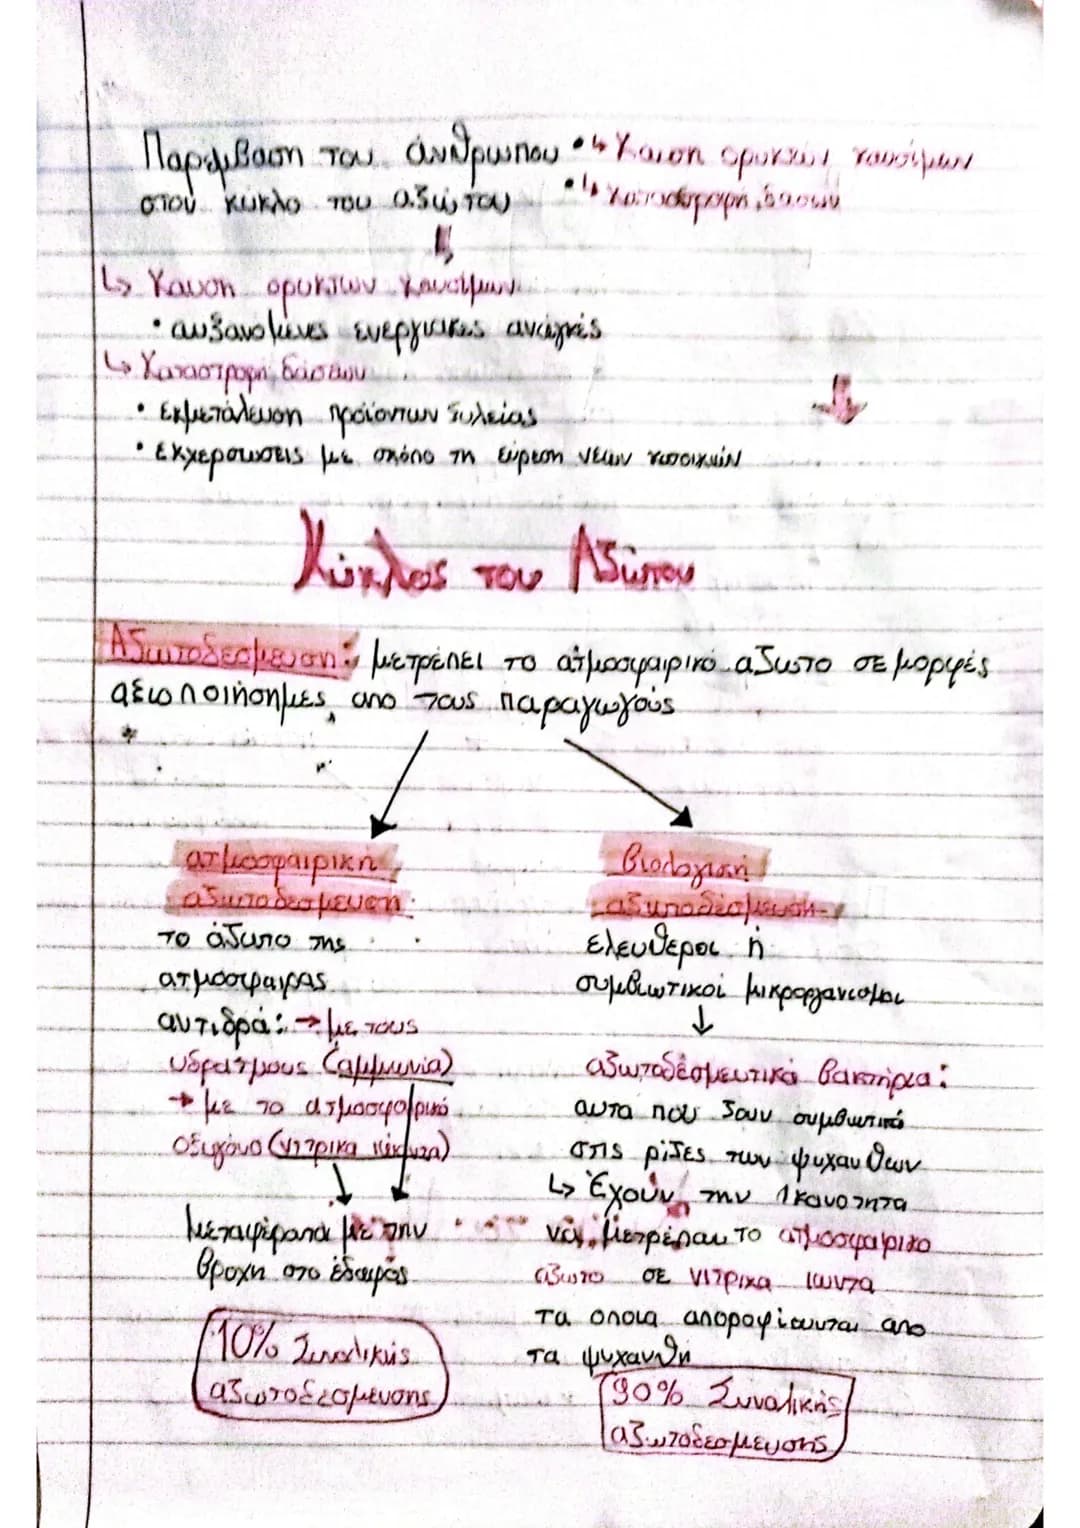 Παρέμβαση του άνθρωπου • ↳ Καυση ορυκτών καυσίμων
στον κύκλο του αζώτου • ↳ καταστροφή δασών
↳ Καυση ορυκτων καυσίμων
• αυξανόμενες ενεργιακες αναγκές
↳ Καταστροφη δάσεων
• εκμετάλευση προϊοντων ξυλείας
• εκχερσωσεις με σκόπο τη εύρεση νεων
Κύκλος του Αζώτου
Αζωτοδεσμευση: μετρέπει το ατμοσφαιρικό αζωτο σε μορφές
αξιοποιήσημες απο τους παραγωγούς
*
ατμοσφαιρική
αζωτοδεσμευση:
το άζωτο της
ατμόσφαιρας
αντιδρά: → με τους
υδρατμους (αμμωνία)
→ με το ατμοσφαιρικό
οξυγόνο (νιτρικα
Μεταφέρονται με την
βροχη στο έδαφός
10% Συνολικής
αζωτοδεσμευσης
βιολογική
αζωτοδέσμευση
ελευθεροι ή
συμβιωτικοί μικροργανισμοι
↓
αζωτοδέσμευτικά βακτήρια:
αυτα που ζουν συμβιωτικά
στις ρίζες των ψυχανθων
↳ Έχουν την ικανοτητα
να μετρέπαν το ατμοσφαιρικο
αζωτο σε νιτρικα ιωντα
τα οποια αποροφίωνται απο
τα ψυχανθη
90% Συνολικής
αζωτοδεσμευσης